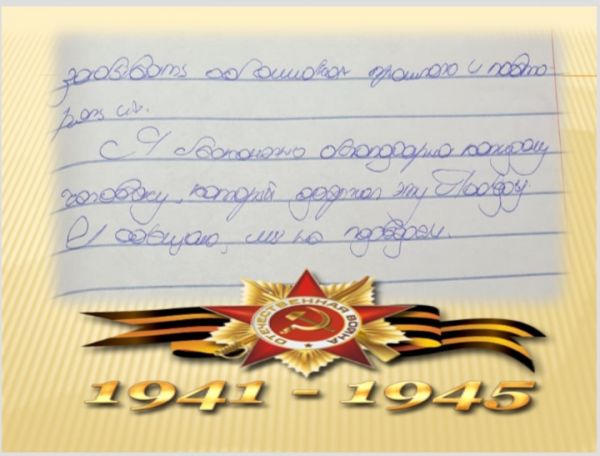 забывать об ошибках прошлого и повто-
рять их.
Я бесконечно благодарна каждому
человеку, который одержал эту Победу.
обещаю, мы не подведём.
ОТЕЧЕСТВЕННАЯ ВОЙНА
1941 - 1945